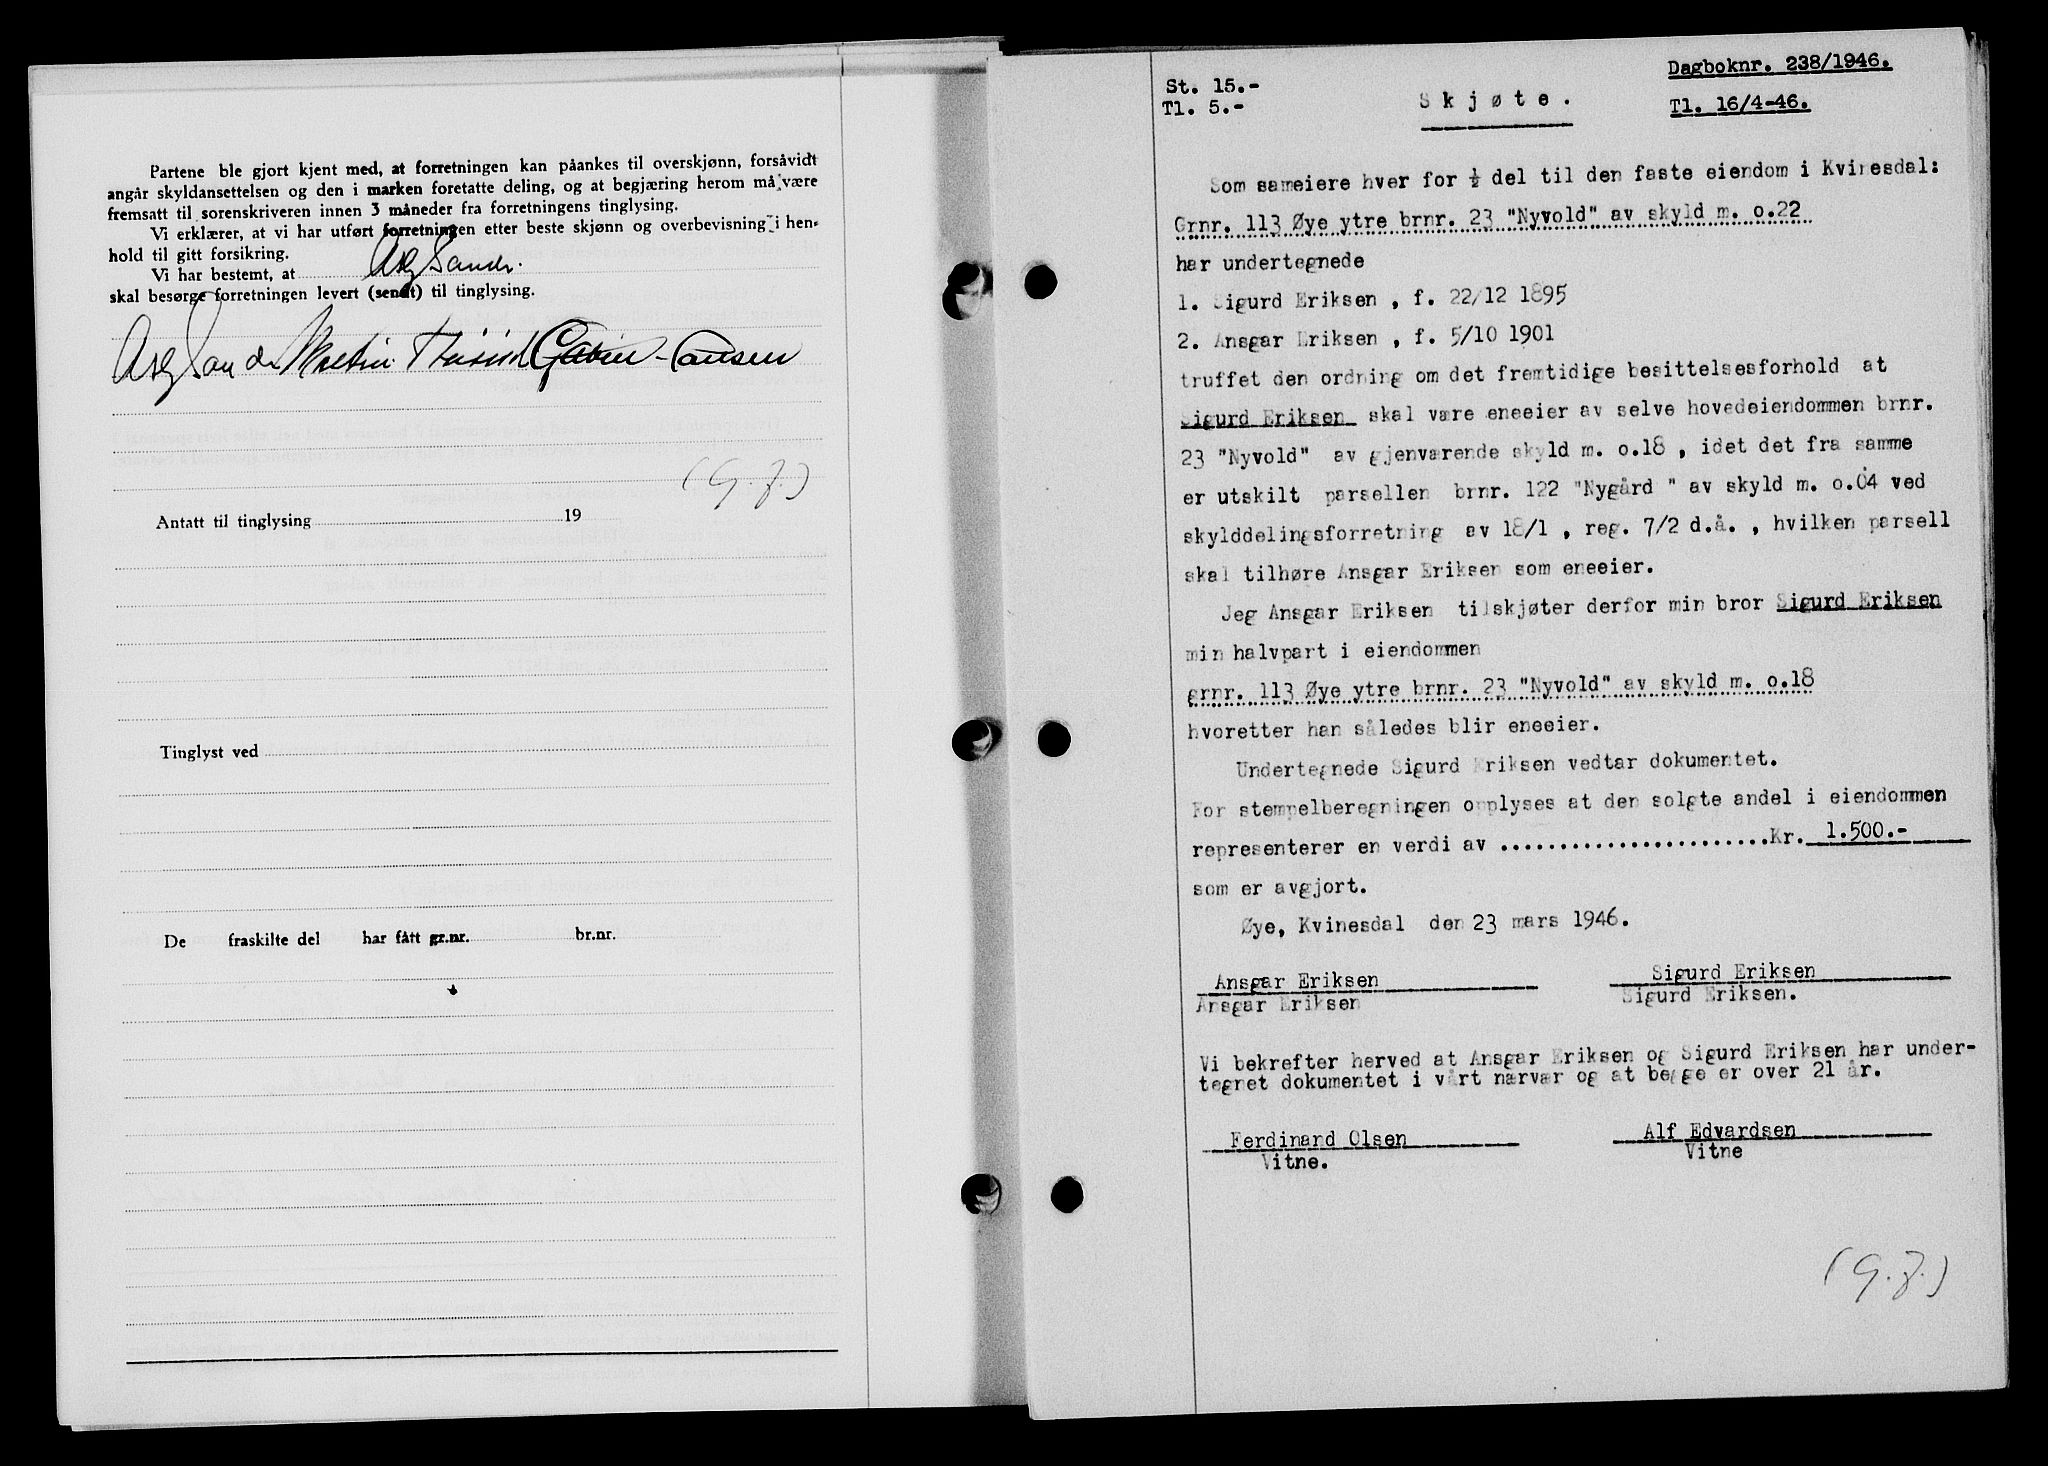 Partene ble gjort kjent med, at forretningen kan påankes til overskjønn, forsåvidt
angår skyldansettelsen og den i marken foretatte deling, og at begjæring herom må være
fremsatt til sorenskriveren innen 3 måneder fra forretningens tinglysing.
Vi erklærer, at vi har utført forretningen etter beste skjønn og overbevisning i hen-
hold til gitt forsikring.
Vi har bestemt, at
skal besørge forretningen levert (sendt) til tinglysing.
(G.J.)
Antatt til tinglysing 19
Tinglyst ved
De fraskilte del har fått gr.nr. br.nr.
Dagboknr. 238/1946.
St. 15.-
Tl. 5.-
Skjøte.
Tl. 16/4-46.
Som sameiere hver for ½ del til den faste eiendom i Kvinesdal:
Grnr. 113 Øye ytre brnr. 23 "Nyvold" av skyld m. o.22
har undertegnede
1. Sigurd Eriksen , f. 22/12 1895
2. Ansgar Eriksen , f. 5/10 1901
truffet den ordning om det fremtidige besittelsesforhold at
Sigurd Eriksen skal være eneeier av selve hovedeiendommen brnr.
23 "Nyvold" av gjenværende skyld m. o.18 , idet det fra samme
er utskilt parsellen brnr. 122 "Nygård " av skyld m. o.04 ved
skylddelingsforretning av 18/1 , reg. 7/2 d.å. , hvilken parsell
skal tilhøre Ansgar Eriksen som eneeier.
Jeg Ansgar Eriksen tilskjøter derfor min bror Sigurd Eriksen
min halvpart i eiendommen
grnr. 113 Øye ytre brnr. 23 "Nyvold" av skyld m. o.18
hvoretter han således blir eneeier.
Undertegnede Sigurd Eriksen vedtar dokumentet.
For stempelberegningen opplyses at den solgte andel i eiendommen
representerer en verdi av .......................Kr. 1.500.-
som er avgjort.
Øye, Kvinesdal den 23 mars 1946.
Ansgar Eriksen Sigurd Eriksen
Ansgar Eriksen Sigurd Eriksen.
Vi bekrefter herved at Ansgar Eriksen og Sigurd Eriksen har under-
tegnet dokumentet i vårt nærvær og at begge er over 21 år.
Ferdinand Olsen Alf Edvardsen
Vitne. Vitne
(G.J.)